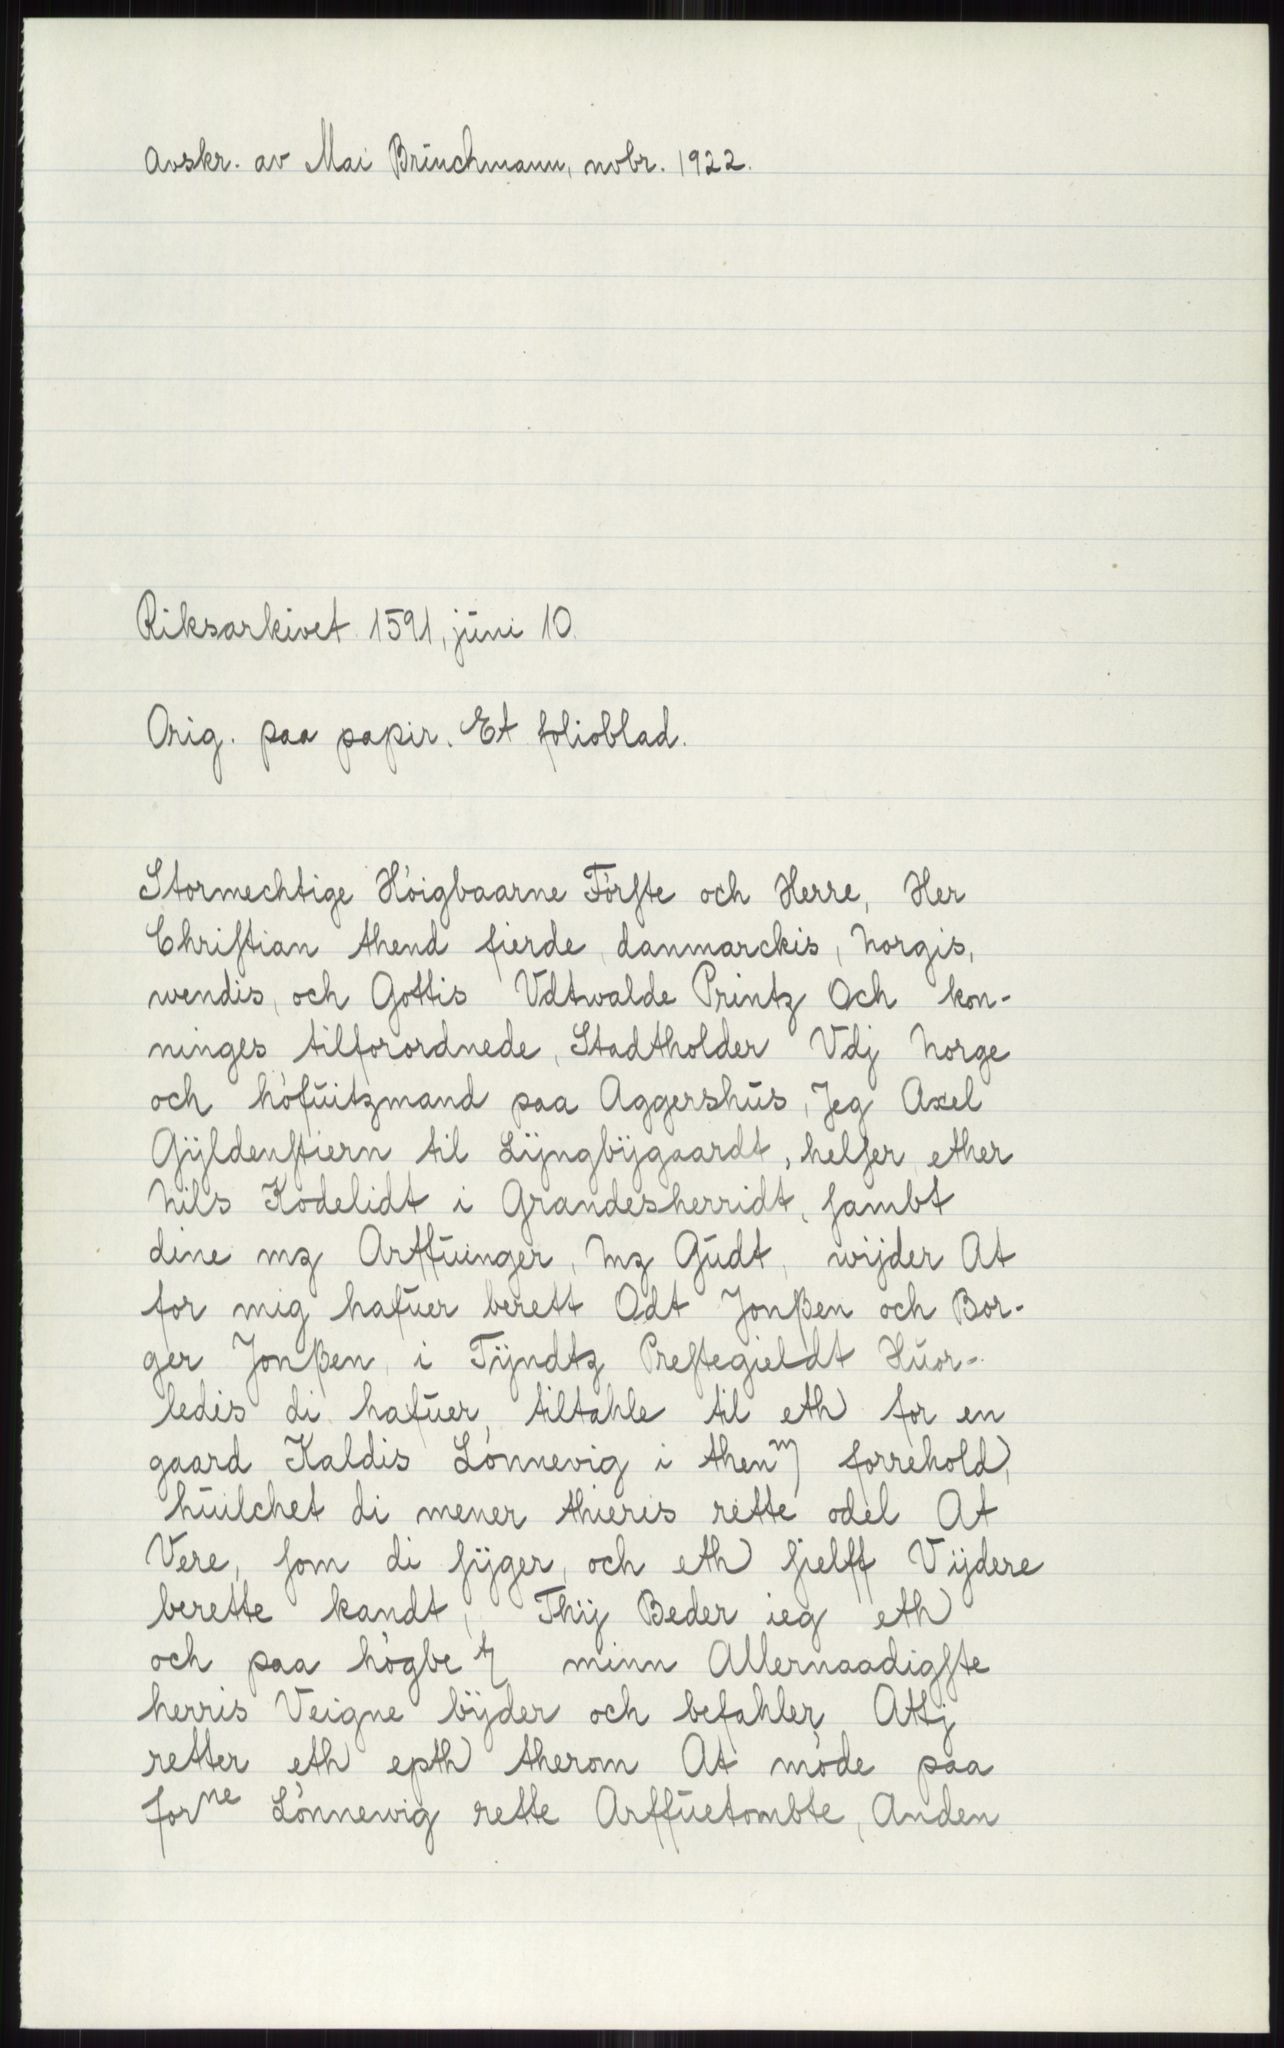 Avskr. av Mai Brünchmann, nvbr. 1922.
Riksarkivet 1591, jüni 10.
Orig. paa papir. Et folioblad.
Stormechtige Höigbaarne Förſte och Herre, Her
Chriſtian thend fierde, danmarckis, Norgis,
wendis, och Gottis Vdtwalde Printz Och kon-
ninges tilforordnede, Stadtholder Vdj Norge
och höfüitzmand paa Aggershüs, Jeg Axel
Gÿldenſtiern til Lÿngbÿgaardt, helſer ether
Nils Kodelidt i Grandesherridt, ſambt
dine mz Arffüinger, Mz Güdt, wijder At
for mig hafüer berett Odt Jonßen och Bor-
ger Jonßen, i Tÿndtz Preſtegieldt Hüor-
ledis di hafüer, tiltahle til eth for en
gaard Kaldis Lönnevig i then forrehold,
hüilchet di mener thieris rette odel At
Vere, ſom di ſÿger, och eth ſielff Vijdere
berette kandt, Thij Beder ieg eth
och paa högbe minn Allernaadigſte
herris Veigne bÿder och befahler, Attj
retter eth epth therom At möde paa
forne Lönnewig rette Arffüetombte, Anden